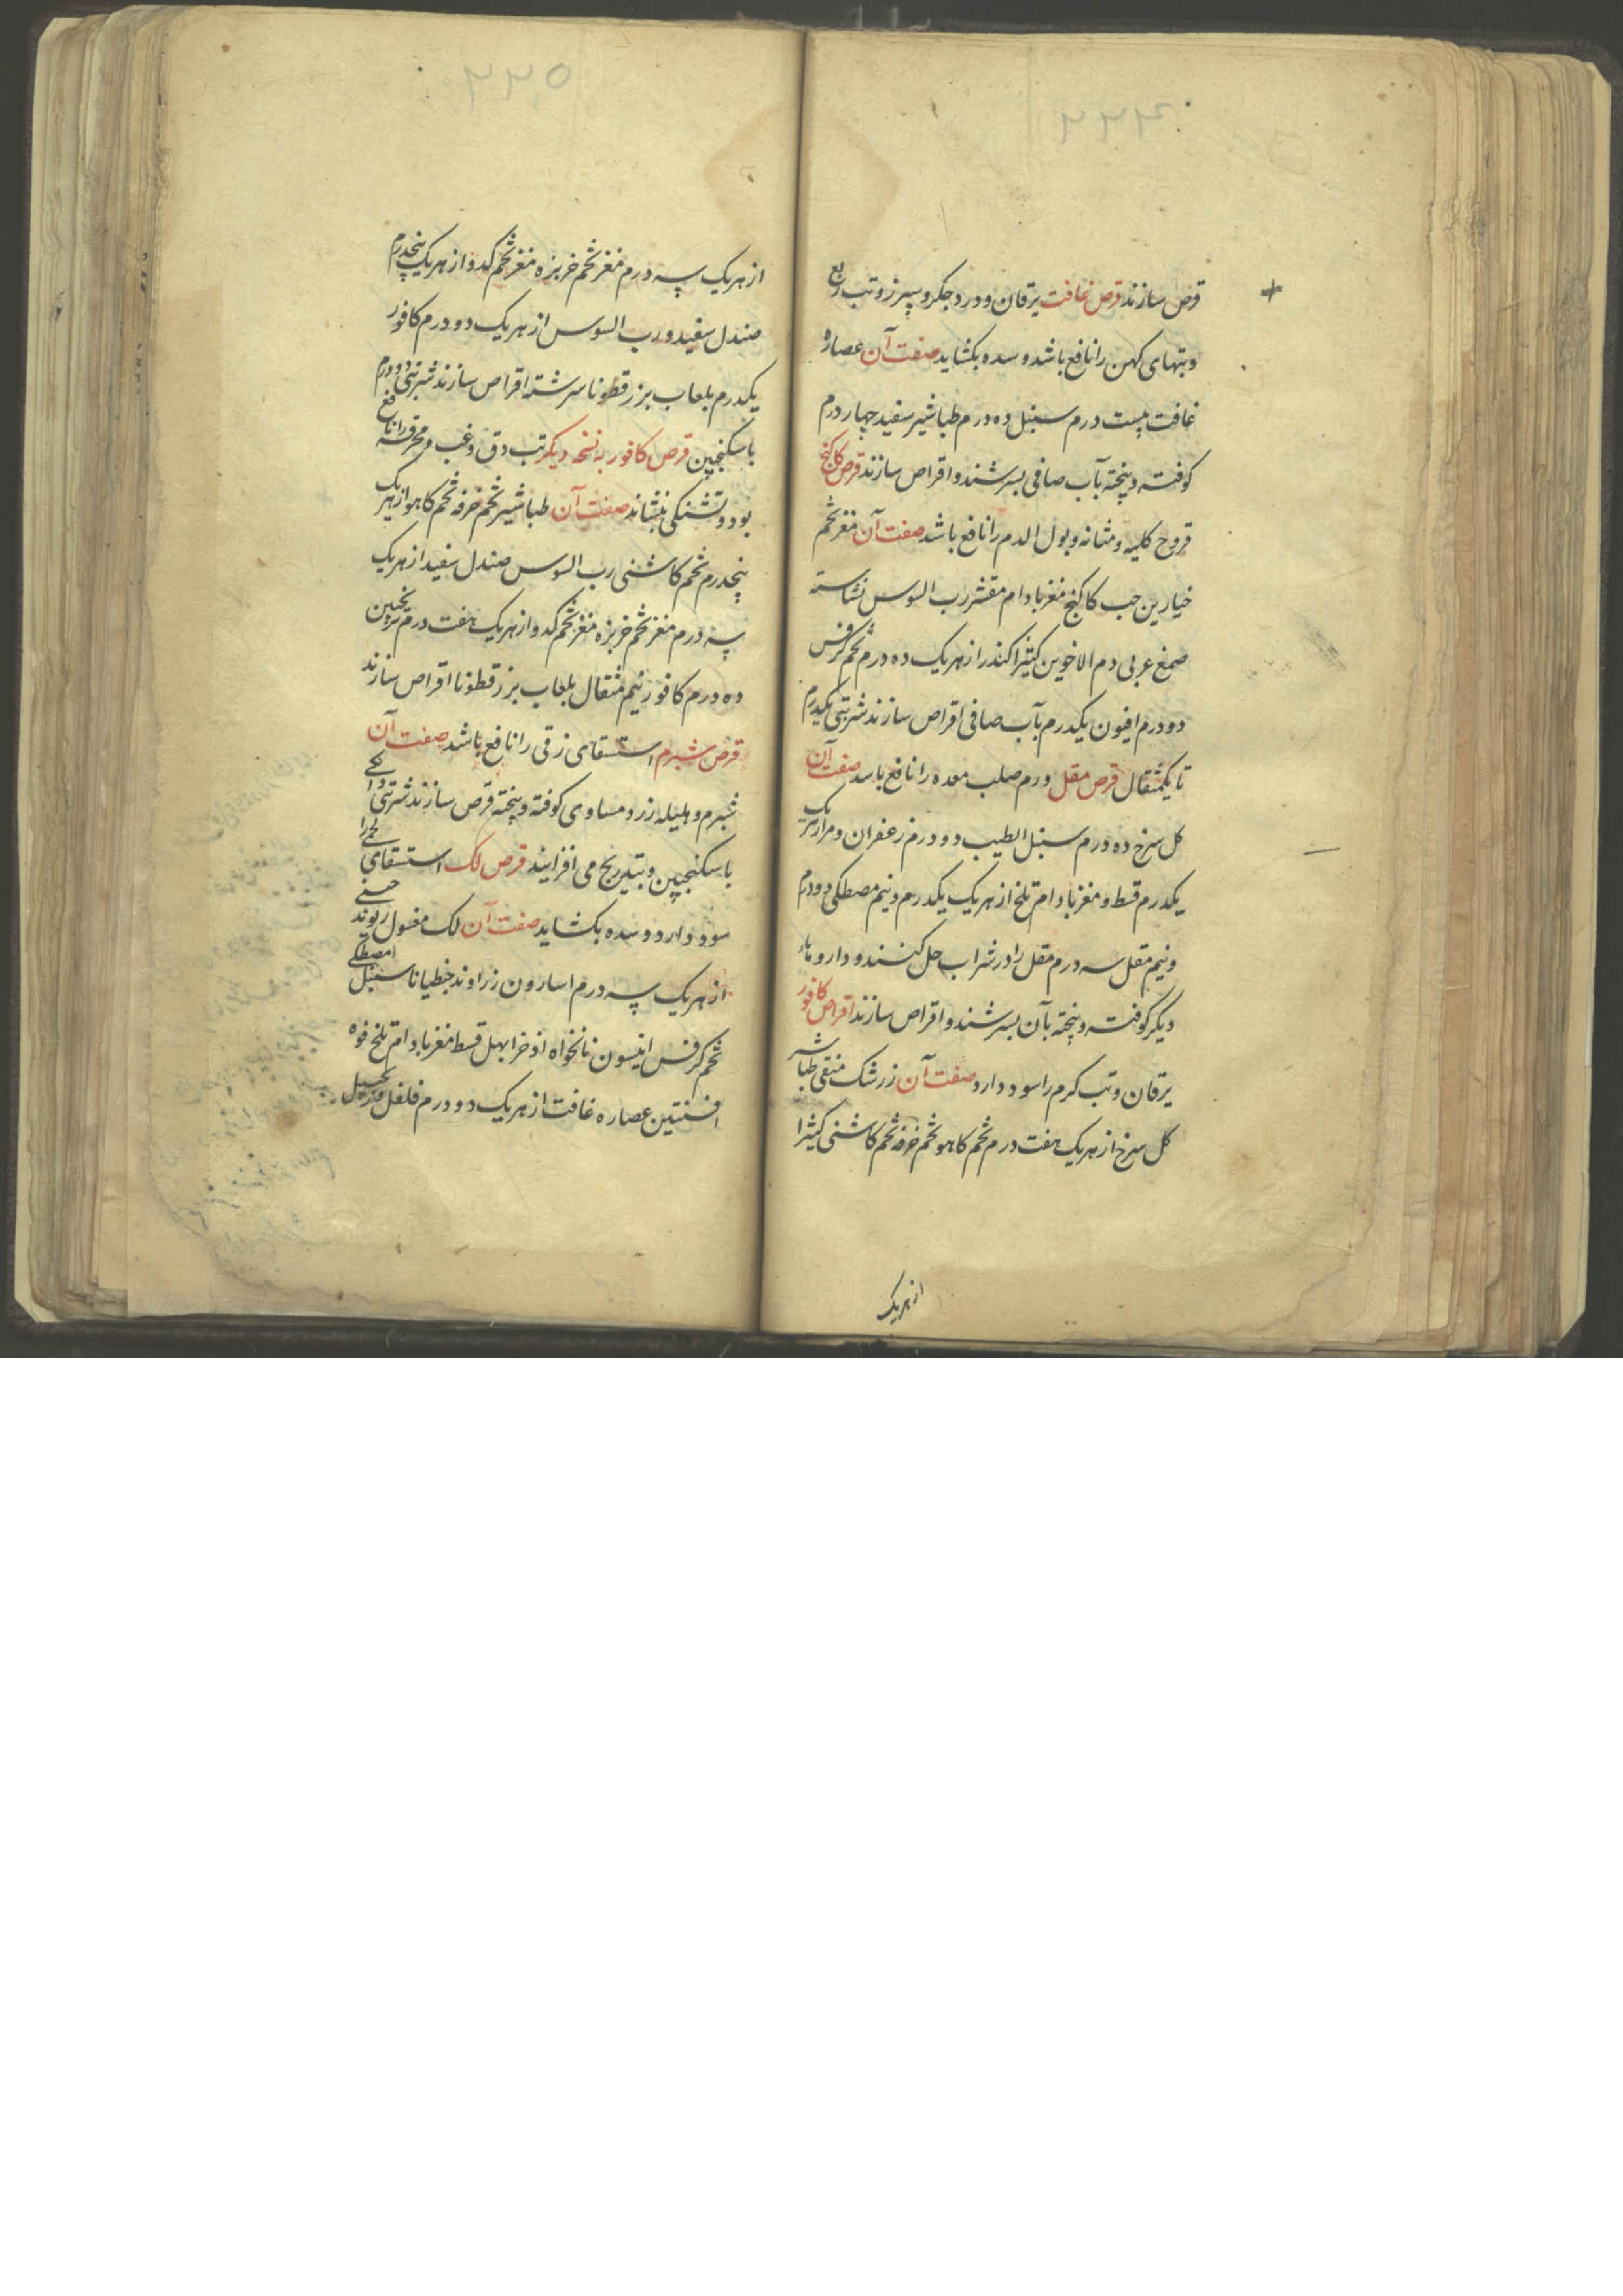 ۲۳۴
قرص سازند قرص غافت یرقان و درد جکر و سپرز و تب ربع
و تبهای کهن را نافع باشد و سده بکشاید صفت آن عصاره
غافت بیست درم سنبل ده درم طباشیر سفید چهار درم
کوفته و پخته بآب صافی بسرشند و اقراص سازند قرص کاکنج
قروح کلیه و مثانه و بول الدم را نافع باشد صفت آن مغز تخم
خیارین حب کاکنج مغز بادام مقشر رب السوس نشاسته
صمغ عربی دم الاخوین کتیرا کندر از هریک ده درم تخم کرفس
دو درم افیون یکدرم بآب صافی اقراص سازند شربتی یکدرم
تا یکمثقال قرص مقل ورم صلب معده را نافع باسد صفت آن
کل سرخ ده درم سنبل الطیب دو درم زعفران و مر از هریک
یکدرم قسط و مغز بادام تلخ از هریک یکدرم و نیم مصطکی دو درم
و نیم مقل سه درم مقل را در شراب حل کنند و داروهاء
دیکر کوفته و پخته بآن بسرشند و اقراص سازند اقراص کافور
یرقان و تب کرم را سود دارد صفت آن زرشک منقی طباشیر
کل سرخ از هریک هفت درم تخم کاهو تخم خرفه تخم کاشنی کتیرا
از هریک
۲۳۵
از هریک سه درم مغز تخم خربزه مغز تخم کدو از هریک پنجدرم
صندل سفید و رب السوس از هریک دو درم کافور
یکدرم بلعاب بزر قطونا سرشته اقراص سازند شربتی دو درم
باسکنجبین قرص کافور به نسخه دیکر تب دق و غب و محرقه را نافع
بود و تشنکی بنشاند صفت آن طباشیر تخم خرفه تخم کاهو از هریک
پنجدرم تخم کاشنی رب السوس صندل سفید از هریک
سه درم مغز تخم خربزه مغز تخم کدو از هریک هفت درم ترنجبین
ده درم کافور نیم مثقال بلعاب بزر قطونا اقراص سازند
قرص شبرم استسقای زقی را نافع باشد صفت آن
شبرم و هلیله زرد مساوی کوفته و پخته قرص سازند شربتی دانکی
باسکنجبین و بتدریج می افزایند قرص لک استسقای لحمی را
سود دارد و سده بکشاید صفت آن لک مغسول ریوند چینی
از هریک سه درم اسارون زراوند جنطیانا سنبل مصطکی
تخم کرفس انیسون نانخواه اذخر ابهل قسط مغز بادام تلخ فوه
افسنتین عصاره غافت از هریک دو درم فلفل زنجبیل